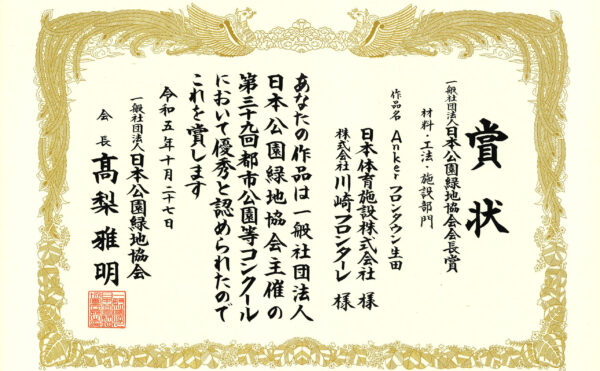 賞状
一般社団法人日本公園緑地協会会長賞
材料・工法・施設部門
作品名 Anker フロンタウン生田
日本体育施設株式会社 様
株式会社川崎フロンターレ 様
あなたの作品は一般社団法人
日本公園緑地協会主催の
第三十九回都市公園等コンクール
において優秀と認められたので
これを賞します
令和五年十月二十七日
一般社団法人日本公園緑地協会
会長 髙梨雅明